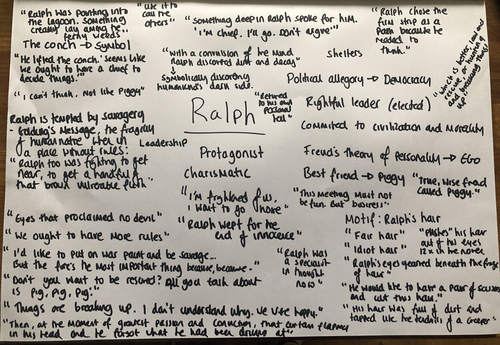 "Ralph was pointing into
the lagoon. Something
creamy lay among the
ferny weeds"
The conch → symbol
"We can use it to
call the
others"
"Something deep in Ralph spoke for him.
'I'm chief. I'll go. Don't argue'"
"Ralph chose the
firm strip as a
path because he
needed to
think."
"He lifted the conch. 'Seems like
we ought to have a chief to
decide things'"
"I can't think. Not like Piggy"
"With a convulsion of the mind
Ralph discarded dirt and decay"
↳ symbolically discarding
humankind's dark side.
Shelters
Political allegory → Democracy
"Which is better, law and
rescue or hunting
and breaking things?"
Ralph
"Returned
to his own
personal
hell"
Rightful leader (elected)
Committed to civilization and morality
Freud's theory of personality → EGO
Best friend → Piggy
"True, wise friend
called Piggy"
Ralph is tempted by savagery
- Golding's message, the fragility
of human nature when in
a place without rules:
"Ralph too was fighting to get
near, to get a handful of
that brown vulnerable flesh"
Leadership
Protagonist
Charismatic
"I'm frightened of us.
I want to go home"
"This meeting must not
be fun but business"
"Eyes that proclaimed no devil"
"We ought to have more rules"
"Ralph wept for the
end of innocence"
Motif: Ralph's hair
"Fair hair"
"Idiot hair"
"pushes" his hair
out of his eyes
12x in the novel
"Ralph's eyes gleamed beneath the fringe
of hair"
"He would like to have a pair of scissors
and cut this hair."
"His hair was full of dirt and
tapped like the tendrils of a creeper"
"I'd like to put on war paint and be savage...
But the fire's the most important thing because, because..."
"Don't you want to be rescued? All you talk about
is pig, pig, pig!"
"Ralph was
a specialist
in thought
now"
"Things are breaking up. I don't understand why. We were happy."
"Then, at the moment of greatest passion and conviction, that curtain flapped
in his head and he forgot what he had been driving at"